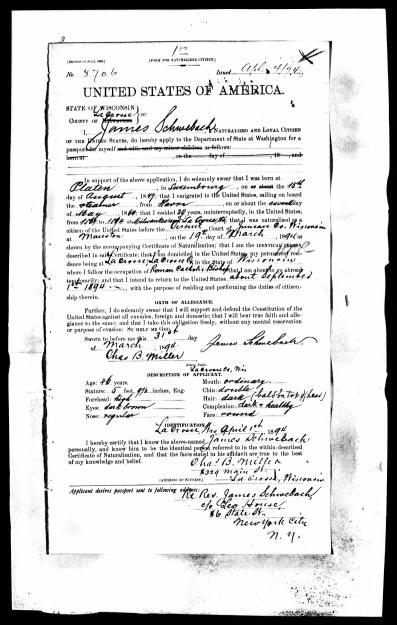 [FORM FOR NATURALIZED CITIZEN.]
No 8706 Issued Apl. 4/94
UNITED STATES OF AMERICA.
STATE OF WISCONSIN
COUNTY OF La Crosse
I, James Schwebach, A NATURALIZED AND LOYAL CITIZEN
OF THE UNITED STATES, do hereby apply to the Department of State at Washington for a
passport for myself and wife, and my minor children as follows:
born at , on the day of , 18 , and
In support of the above application, I do solemnly swear that I was born at
Platen, in Luxembourg, on or about the 15th
day of August, 1847; that I emigrated to the United States, sailing on board
the Steamer, from Havre, on or about the seventh
day of May 1864; that I resided 30 years, uninterruptedly, in the United States,
from 1864 to 1894 at La Crosse Wis; that I was naturalized as a
citizen of the United States before the Circuit Court of Juneau Co. Wisconsin
at Mauston, on the 19th day of March, as
shown by the accompanying Certificate of Naturalization; that I am the IDENTICAL PERSON
described in said Certificate; that I am domiciled in the United States, my permanent resi-
dence being at La Crosse, La Crosse Co., in the State of Wisconsin,
where I follow the occupation of Roman Catholic Bishop; that I am about to go abroad
temporarily; and that I intend to return to the United States about September
1st 1894, with the purpose of residing and performing the duties of citizen-
ship therein.
OATH OF ALLEGIANCE.
Further, I do solemnly swear that I will support and defend the Constitution of the
United States against all enemies, foreign and domestic; that I will bear true faith and alle-
giance to the same; and that I take this obligation freely, without any mental reservation
or purpose of evasion: SO HELP ME GOD.
Sworn to before me this 31st day
of March, 1894 James Schwebach
Chas B. Miller
Notary Public.
La Crosse, Wis
DESCRIPTION OF APPLICANT.
Age: 46 years. Mouth: ordinary
Stature: 5 feet, inches, Eng. Chin: double
Forehead: high Hair: dark (bald on top of head)
Eyes: dark brown Complexion: dark & healthy
Nose: regular Face: round
IDENTIFICATION.
La Crosse, Wis April 1st 1894
I hereby certify that I know the above-named James Schwebach
personally, and know him to be the identical person referred to in the within-described
Certificate of Naturalization, and that the facts stated in his affidavit are true to the best
of my knowledge and belief. Chas. B. Miller
329 Main St.
[ADDRESS OF WITNESS.] La Crosse, Wisconsin
Applicant desires passport sent to following address:
Rt Rev. James Schwebach,
c/o Leo House,
#6 State St.
New York City
N. Y.